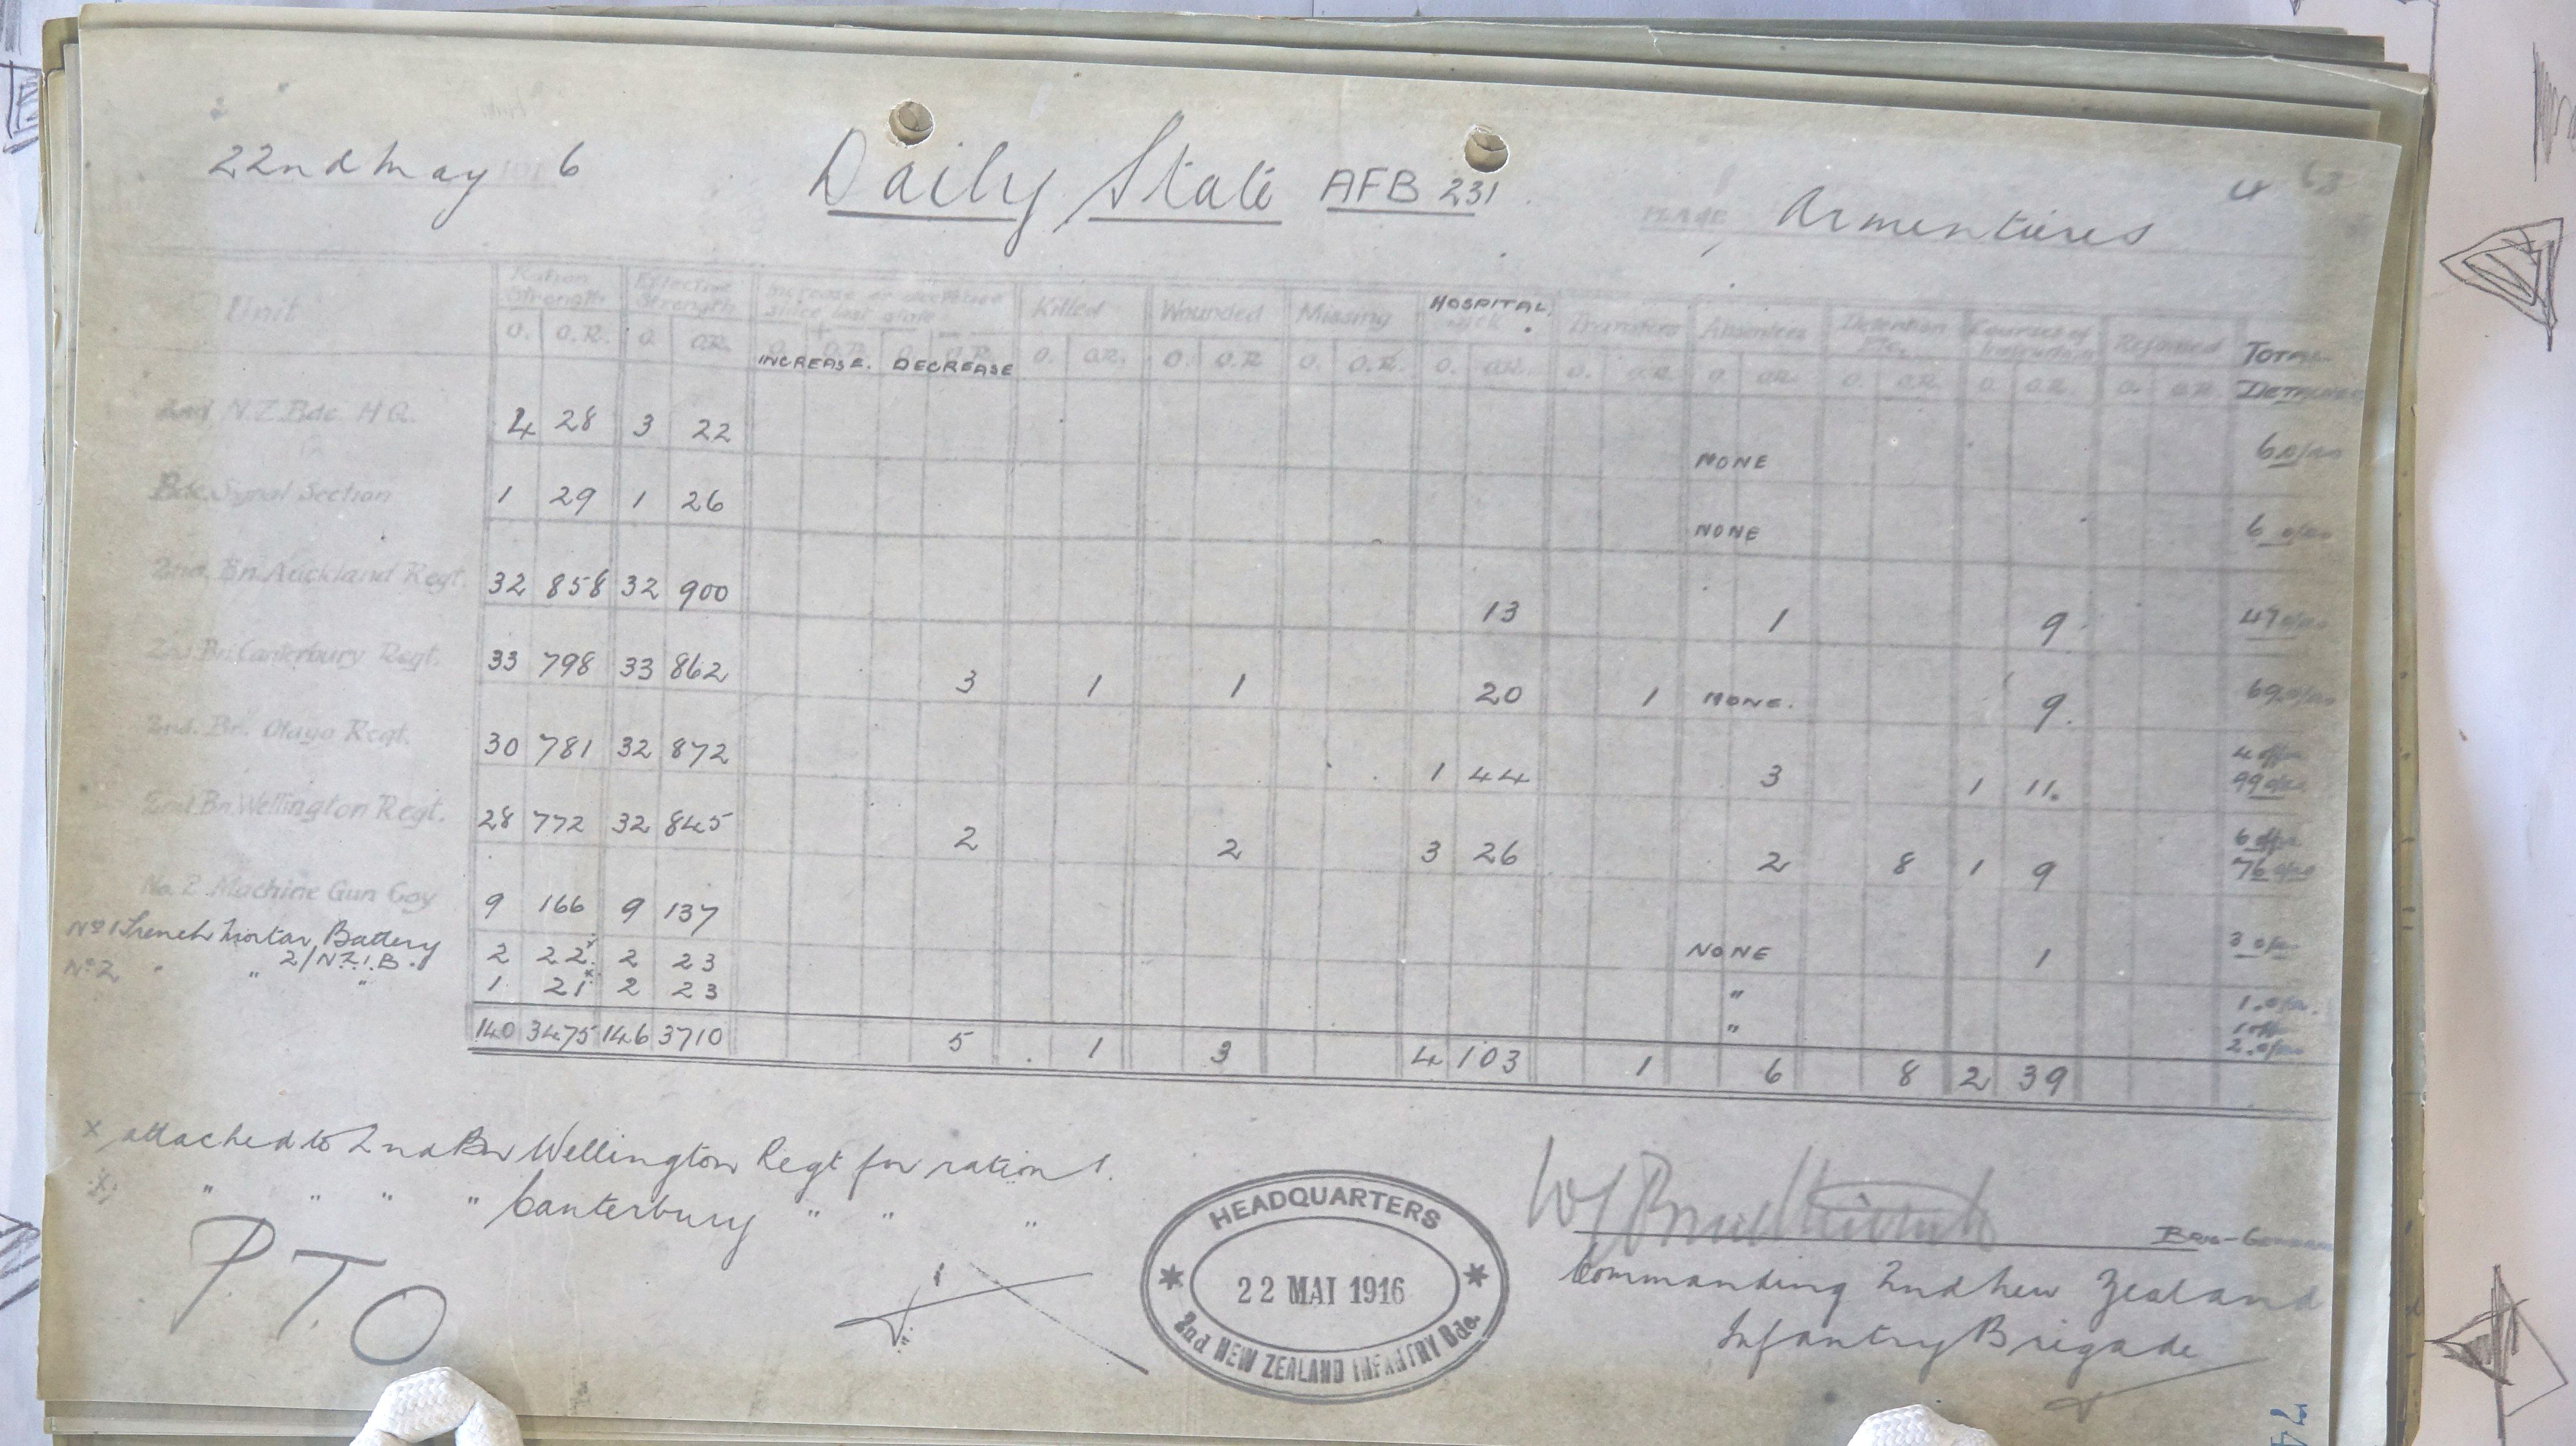 22nd May 1916 Daily State AFB 231 PLACE Armentieres
Unit Ration Strength Effective Strength Increase or decrease since last state Killed Wounded Missing HOSPITAL Sick Transfers Absentees Detention Etc. Courses of Instruction Rejoined TOTAL DETAILED
O. O.R. O. O.R. INCREASE. DECREASE O. O.R. O. O.R. O. O.R. O. O.R. O. O.R. O. O.R. O. O.R. O. O.R. O. O.R.
2nd N.Z. Bde. H.Q. 4 28 3 22 NONE 6 o/ra
Bde. Signal Section 1 29 1 26 NONE 6 o/ra
2nd. Bn. Auckland Regt. 32 858 32 900 13 1 9 47 o/ra
2nd Bn. Canterbury Regt. 33 798 33 862 3 1 1 20 1 NONE. 9. 69 o/ra
2nd. Bn. Otago Regt. 30 781 32 872 1 44 3 1 11. 4 offrs 99 o/ra
2nd Bn. Wellington Regt. 28 772 32 845 2 2 3 26 2 8 1 9 6 offrs 76 o/ra
No. 2 Machine Gun Coy 9 166 9 137 NONE 1 3 o/ra
No 1 Trench Mortar Battery 2/N.Z.I.B. 2 22 x 2 23 " 1 o/ra.
No 2 " " " 1 21 x 2 23 " 1 off 2 o/ra
140 3475 146 3710 5 1 3 4 103 1 6 8 2 39
x attached to 2nd Bn Wellington Regt for rations.
x " " " " Canterbury " " "
P.T.O
HEADQUARTERS
22 MAI 1916
2nd NEW ZEALAND INFANTRY Bde.
Brig-General
Commanding 2nd New Zealand
Infantry Brigade